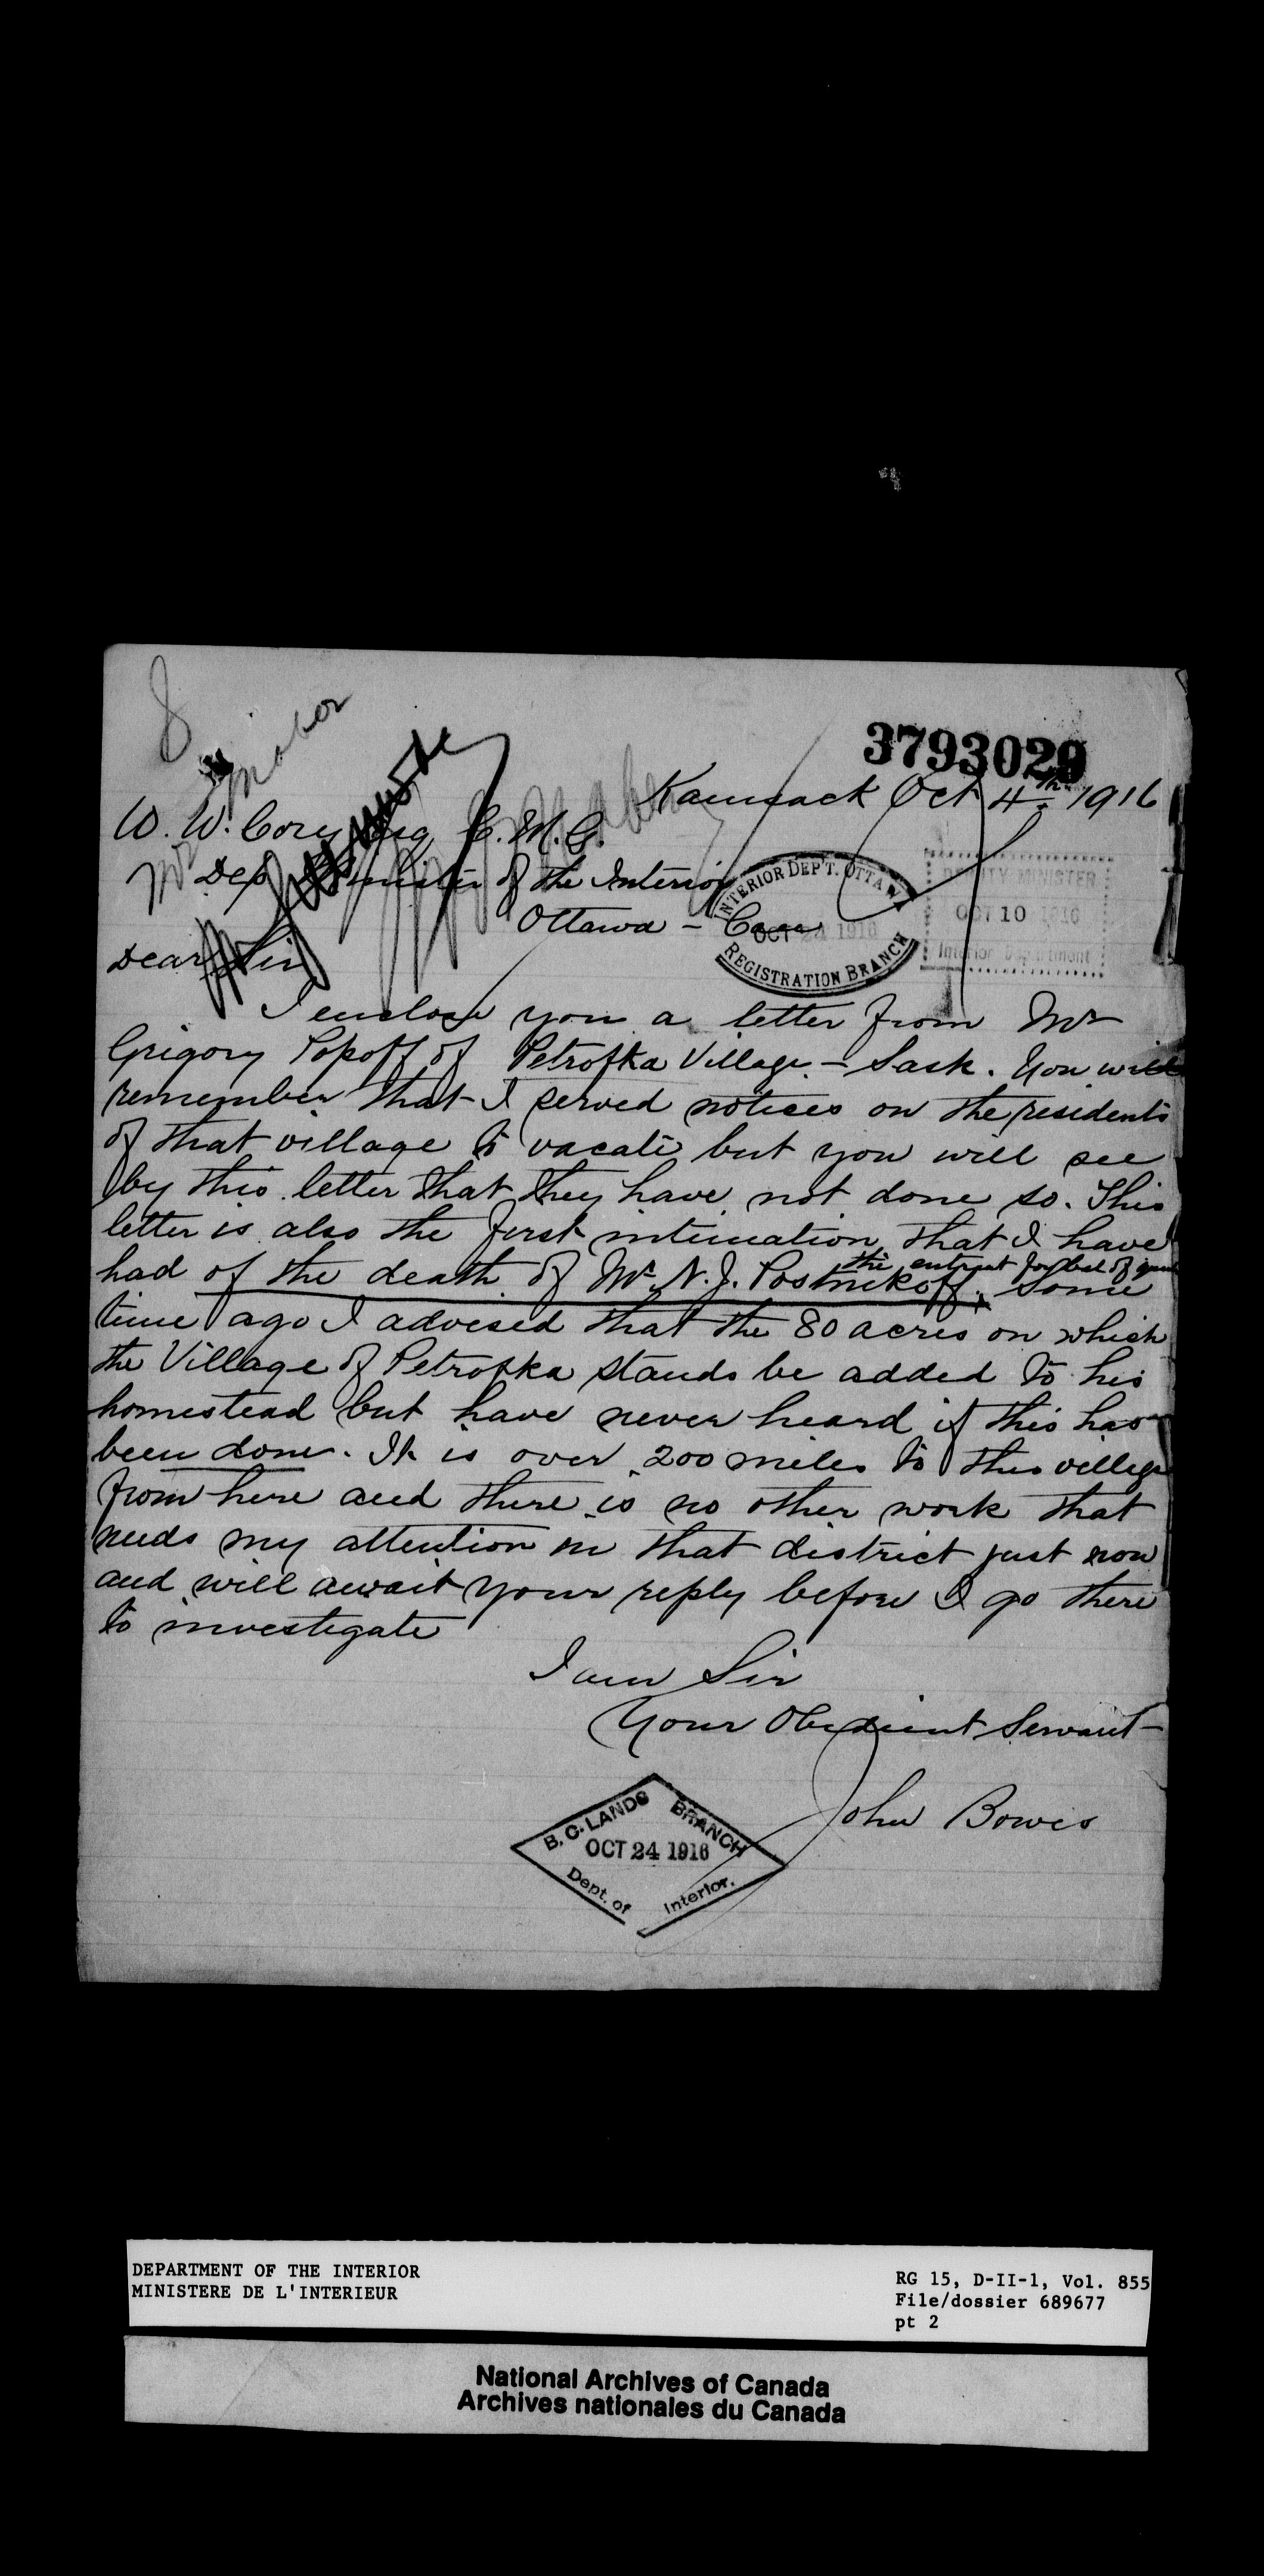 8
3793029
Kamsack Oct 4th 1916
W. W. Cory Esq C. M. G.
Dep Minister of the Interior
Ottawa - Can
INTERIOR DEP'T. OTTAWA
OCT 24 1916
REGISTRATION BRANCH
DEPUTY MINISTER
OCT 10 1916
Interior Department
Dear Sir
I enclose you a letter from Mr
Grigory Popoff of Petrofka Village - Sask. You will
remember that I served notices on the residents
of that village to vacate but you will see
by this letter that they have not done so. This
letter is also the first intimation that I have
the entrant for bal of
had of the death of Mr N. J. Postnikoff. Some
time ago I advised that the 80 acres on which
the Village of Petrofka stands be added to his
homestead but have never heard if this has
been done. It is over 200 miles to this village
from here and there is no other work that
needs my attention in that district just now
and will await your reply before I go there
to investigate
I am Sir
Your Obedient Servant
John Bowes
B. C. LANDS BRANCH
OCT 24 1916
Dept. of Interior.
DEPARTMENT OF THE INTERIOR
MINISTERE DE L'INTERIEUR
RG 15, D-II-1, Vol. 855
File/dossier 689677
pt 2
National Archives of Canada
Archives nationales du Canada